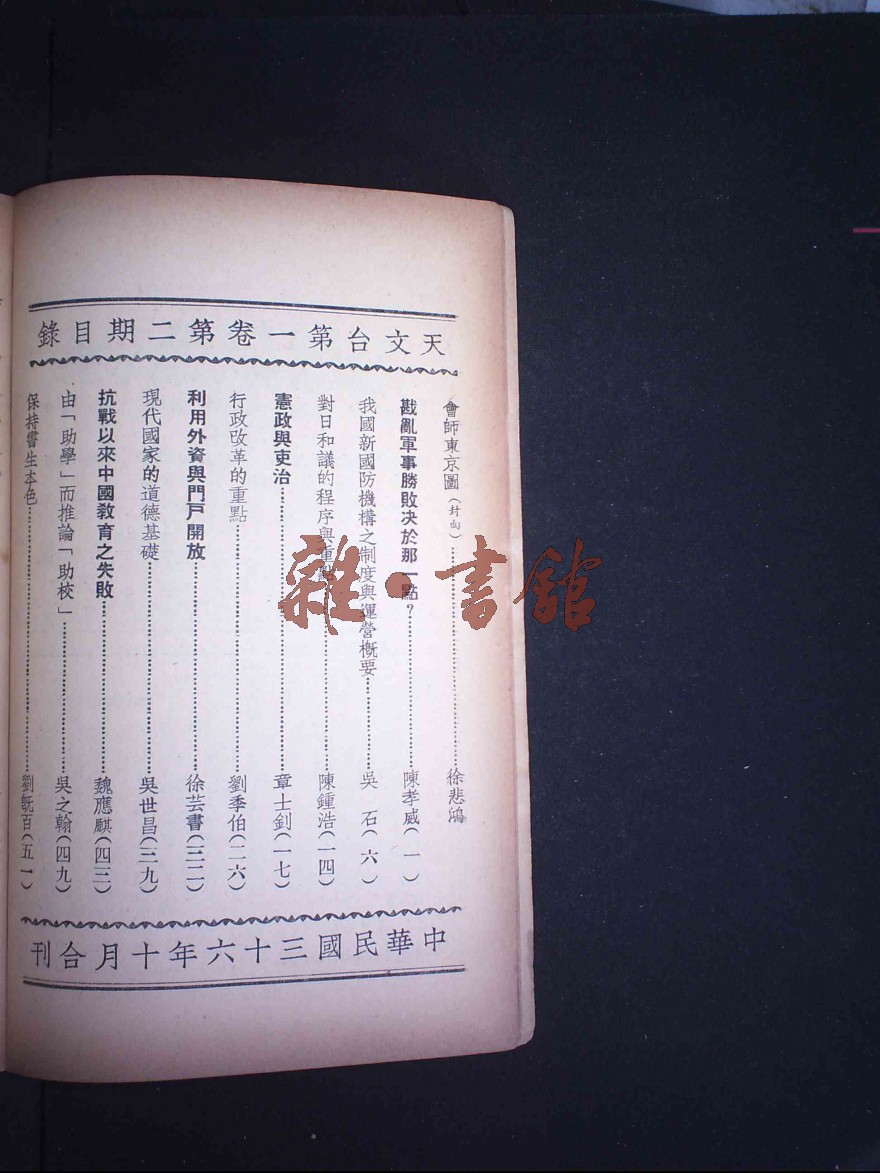 天文台第一卷第二期目錄
會師東京圖（封面）……徐悲鴻
戡亂軍事勝敗决於那一點？……陳孝威（一）
我國新國防機構之制度與運營概要……吳 石（六）
對日和議的程序與重點……陳鍾浩（一四）
憲政與吏治……章士釗（一七）
行政改革的重點……劉季伯（二六）
利用外資與門戶開放……徐芸書（三二）
現代國家的道德基礎……吳世昌（三九）
抗戰以來中國教育之失敗……魏應麒（四三）
由「助學」而推論「助校」……吳之翰（四九）
保持書生本色……劉百（五一）
中華民國三十六年十月合刊
雜·書館